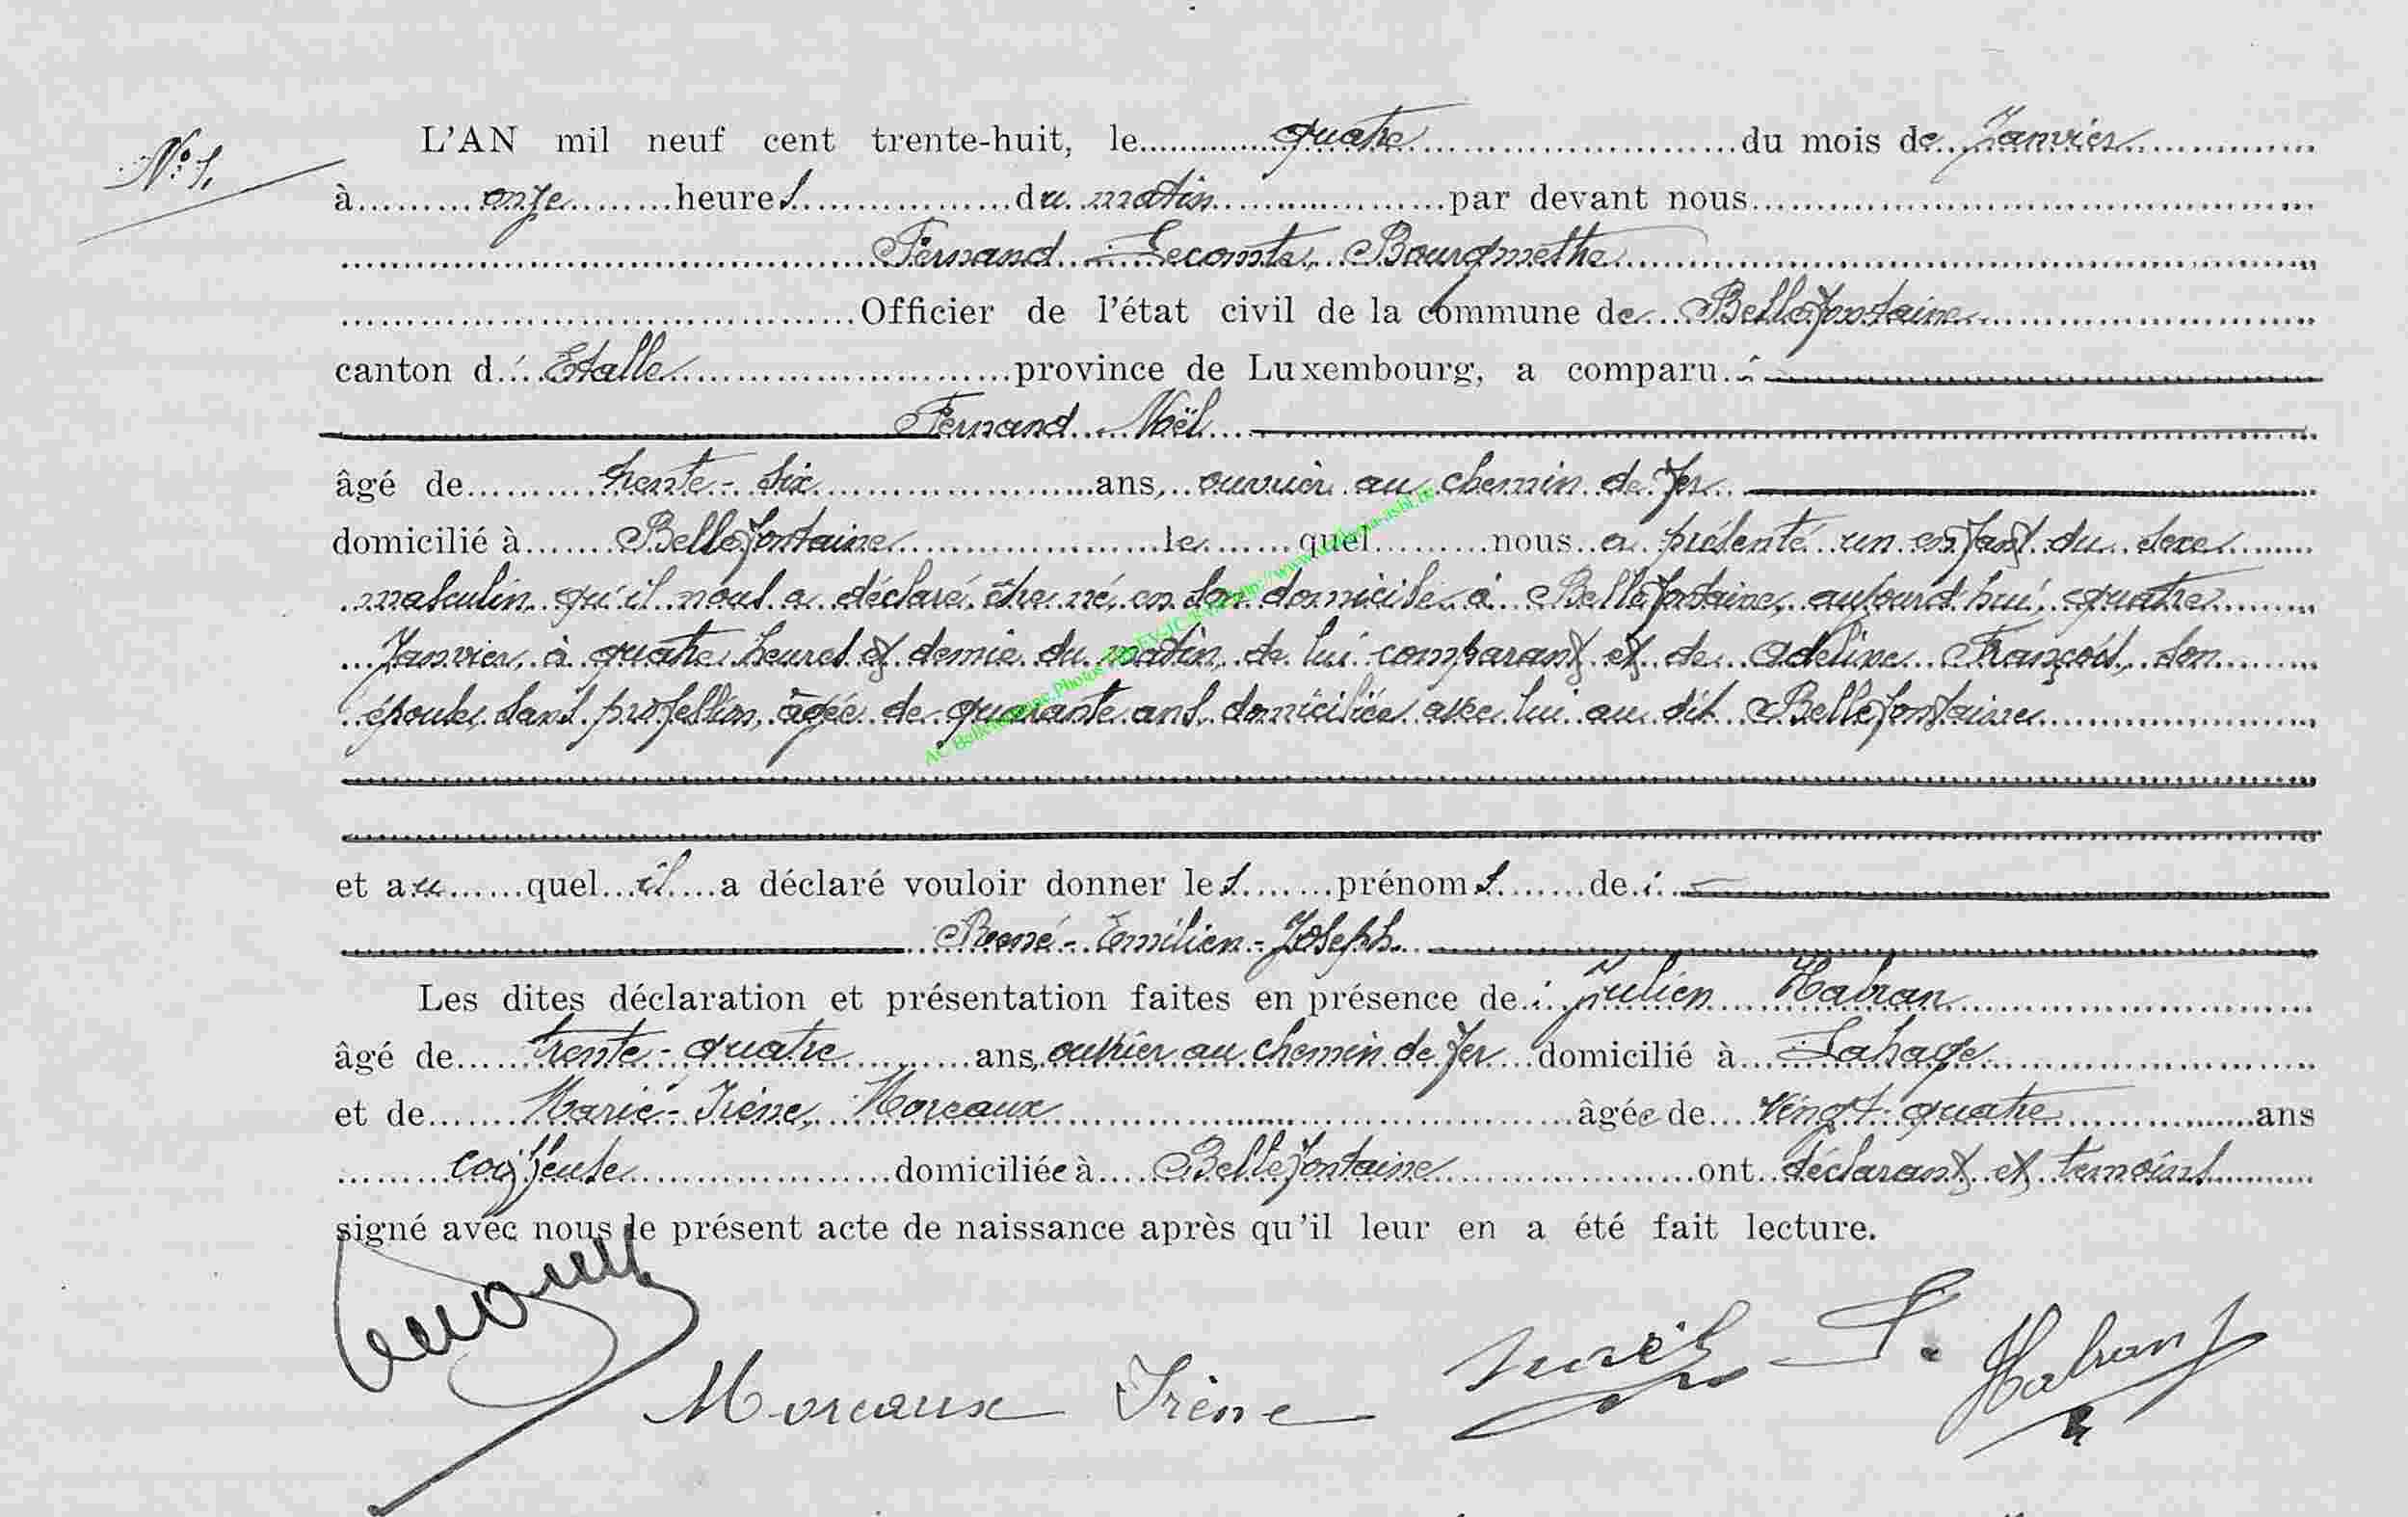 N° 1.
L'AN mil neuf cent trente-huit, le quatre du mois de Janvier
à onze heures du matin par devant nous
Fernand Lecomte, Bourgmestre
Officier de l'état civil de la commune de Bellefontaine
canton d' Etalle province de Luxembourg, a comparu :
Fernand Noël
âgé de trente-six ans, ouvrier au chemin de fer
domicilié à Bellefontaine lequel nous a présenté un enfant du sexe
masculin qu'il nous a déclaré être né en son domicile à Bellefontaine, aujourd'hui quatre
Janvier à quatre heures et demie du matin, de lui comparant et de Adeline François, son
épouse, sans profession, âgée de quarante ans, domiciliée avec lui au dit Bellefontaine
et au quel il a déclaré vouloir donner les prénoms de :
René-Emilien-Joseph.
Les dites déclaration et présentation faites en présence de : Julien Habran
âgé de trente-quatre ans, ouvrier au chemin de fer domicilié à Lahage
et de Marie-Irène Moreaux âgée de vingt-quatre ans
coiffeuse domiciliée à Bellefontaine ont déclarant et temoins
signé avec nous le présent acte de naissance après qu'il leur en a été fait lecture.
Moreaux Irène Noël F. Habran J